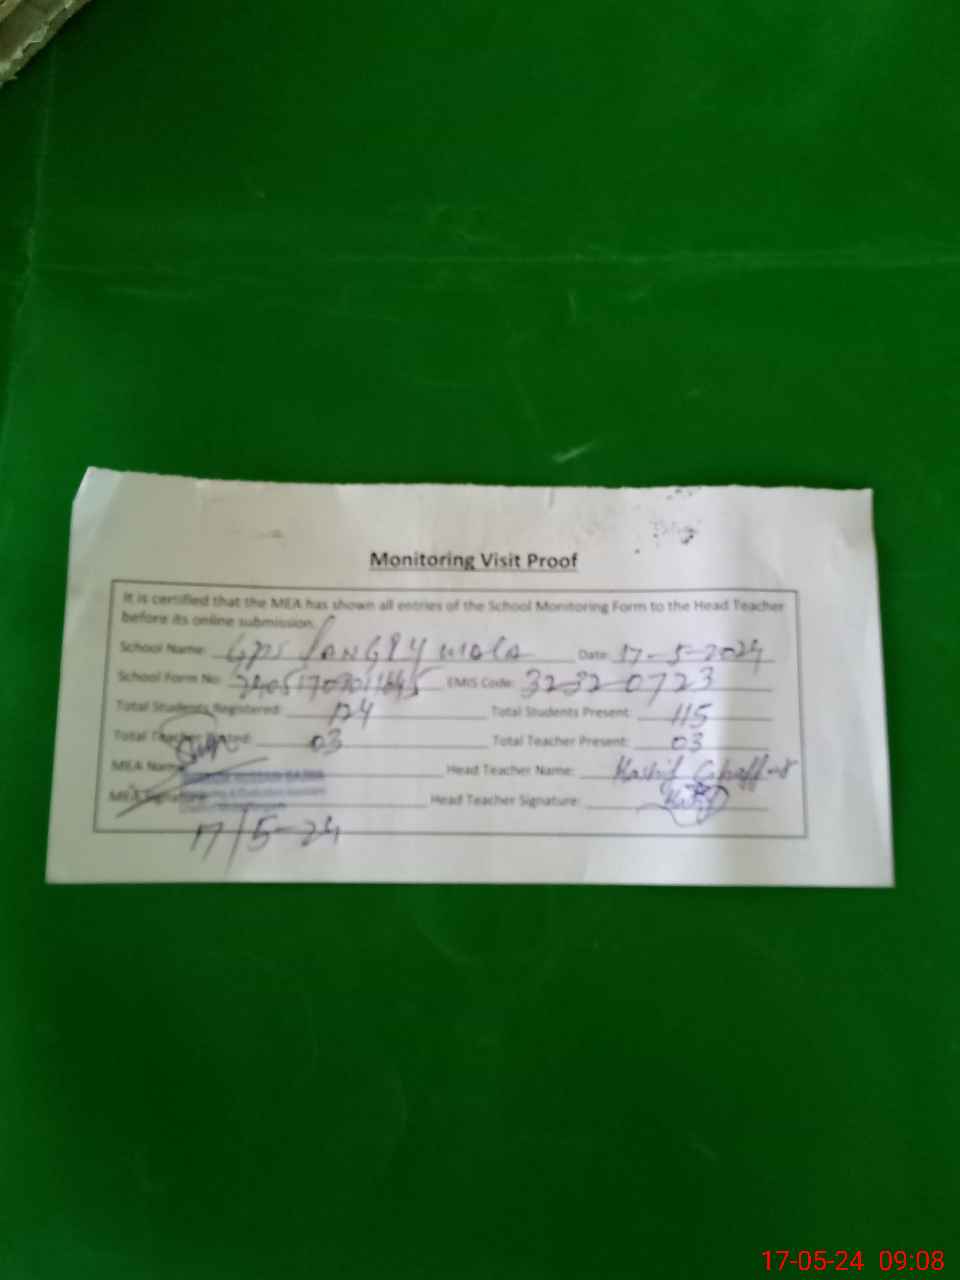 Monitoring Visit Proof
It is certified that the MEA has shown all entries of the School Monitoring Form to the Head Teacher
before its online submission.
School Name: GPS LANGRY WALA Date: 17-5-2024
School Form No: EMIS Code: 3232 0723
Total Students Registered: 124 Total Students Present: 115
Total Teacher Posted: 03 Total Teacher Present: 03
MEA Name: Head Teacher Name: Kashif Ghaffar
MEA Signature: Head Teacher Signature:
17/5-24
17-05-24 09:08